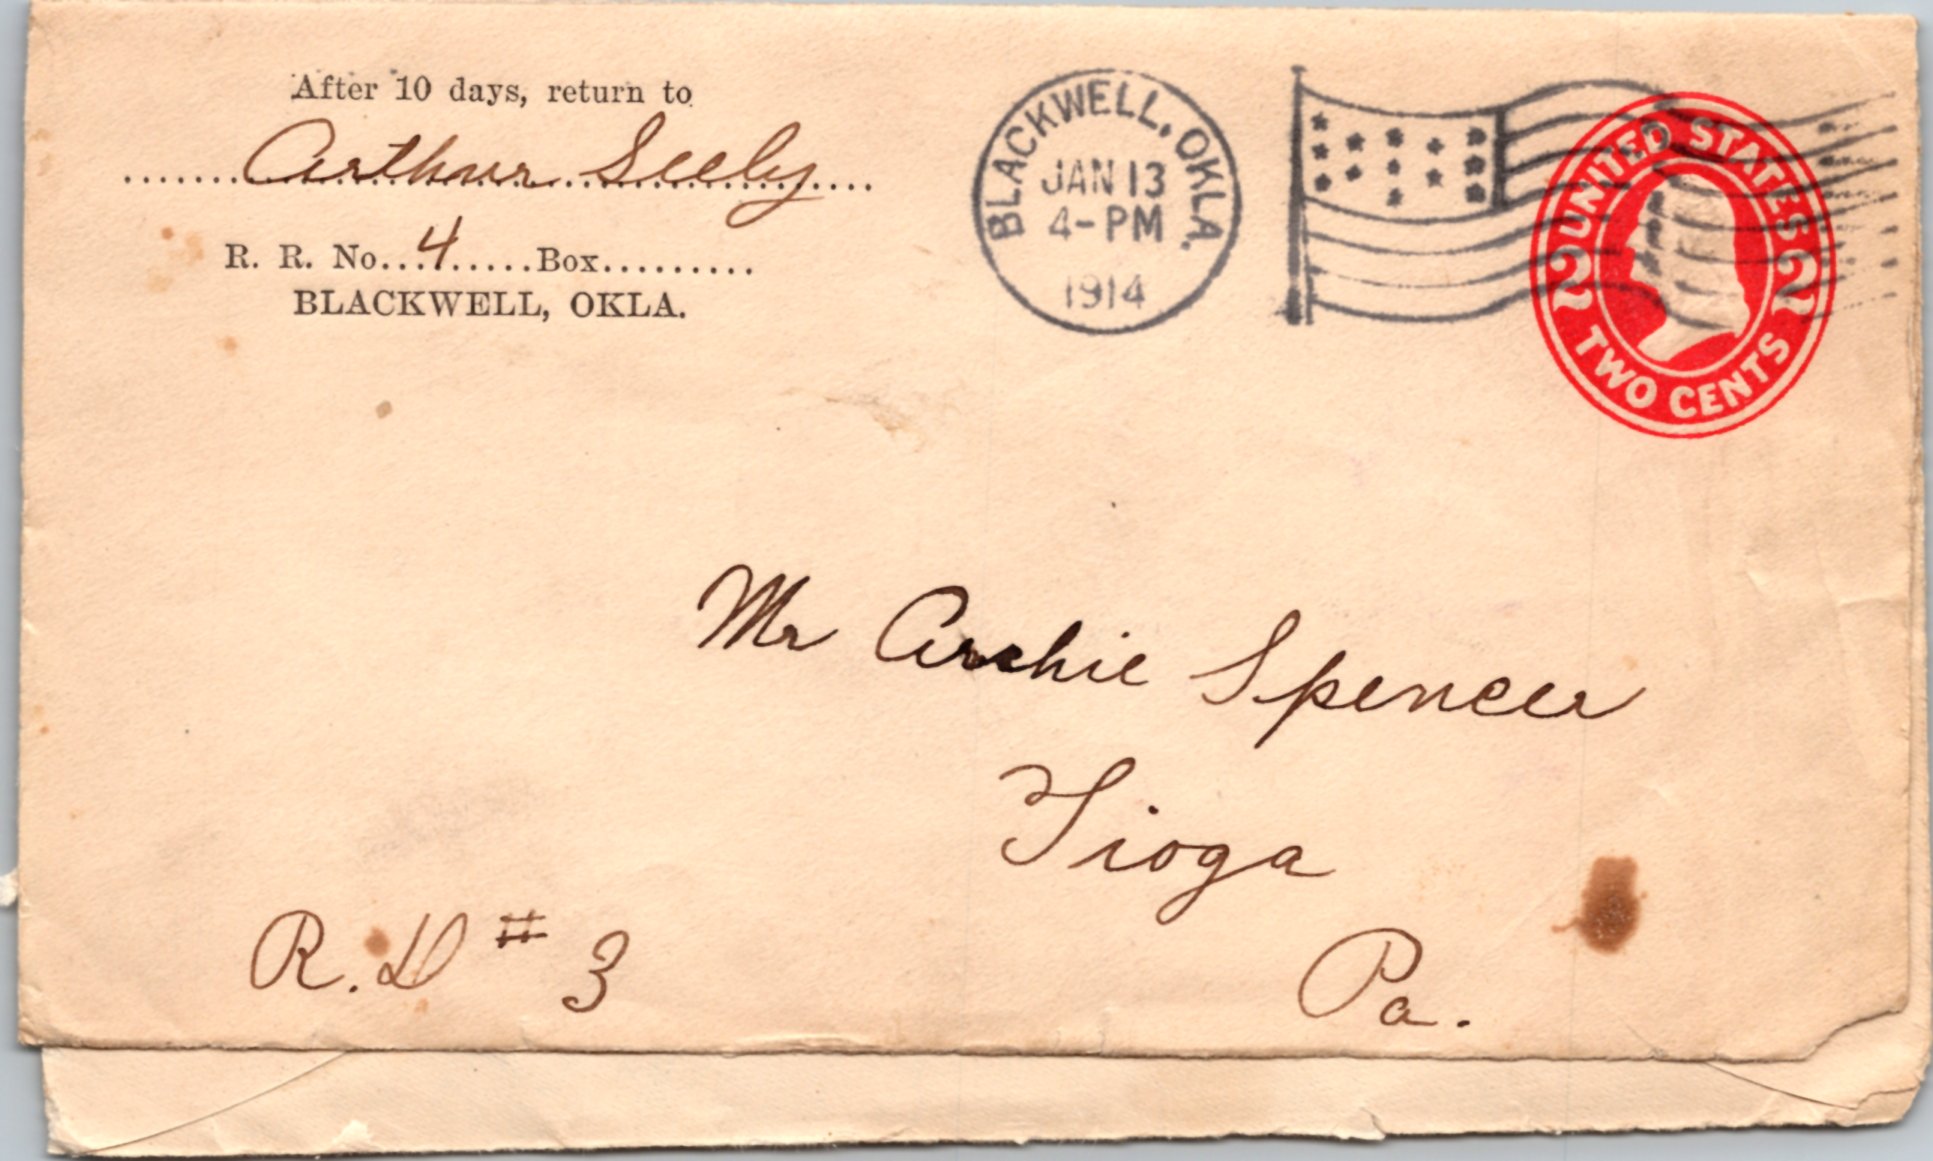 After 10 days, return to
Arthur Seely
R. R. No...4.....Box.........
BLACKWELL, OKLA.
BLACKWELL, OKLA.
JAN 13
4-PM
1914
UNITED STATES
2 2
TWO CENTS
Mr Archie Spencer
Tioga
Pa.
R. D # 3